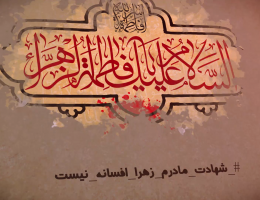 السلام علیک یا فاطمة الزهراء
#_شهادت_مادرم_زهرا_افسانه_نیست